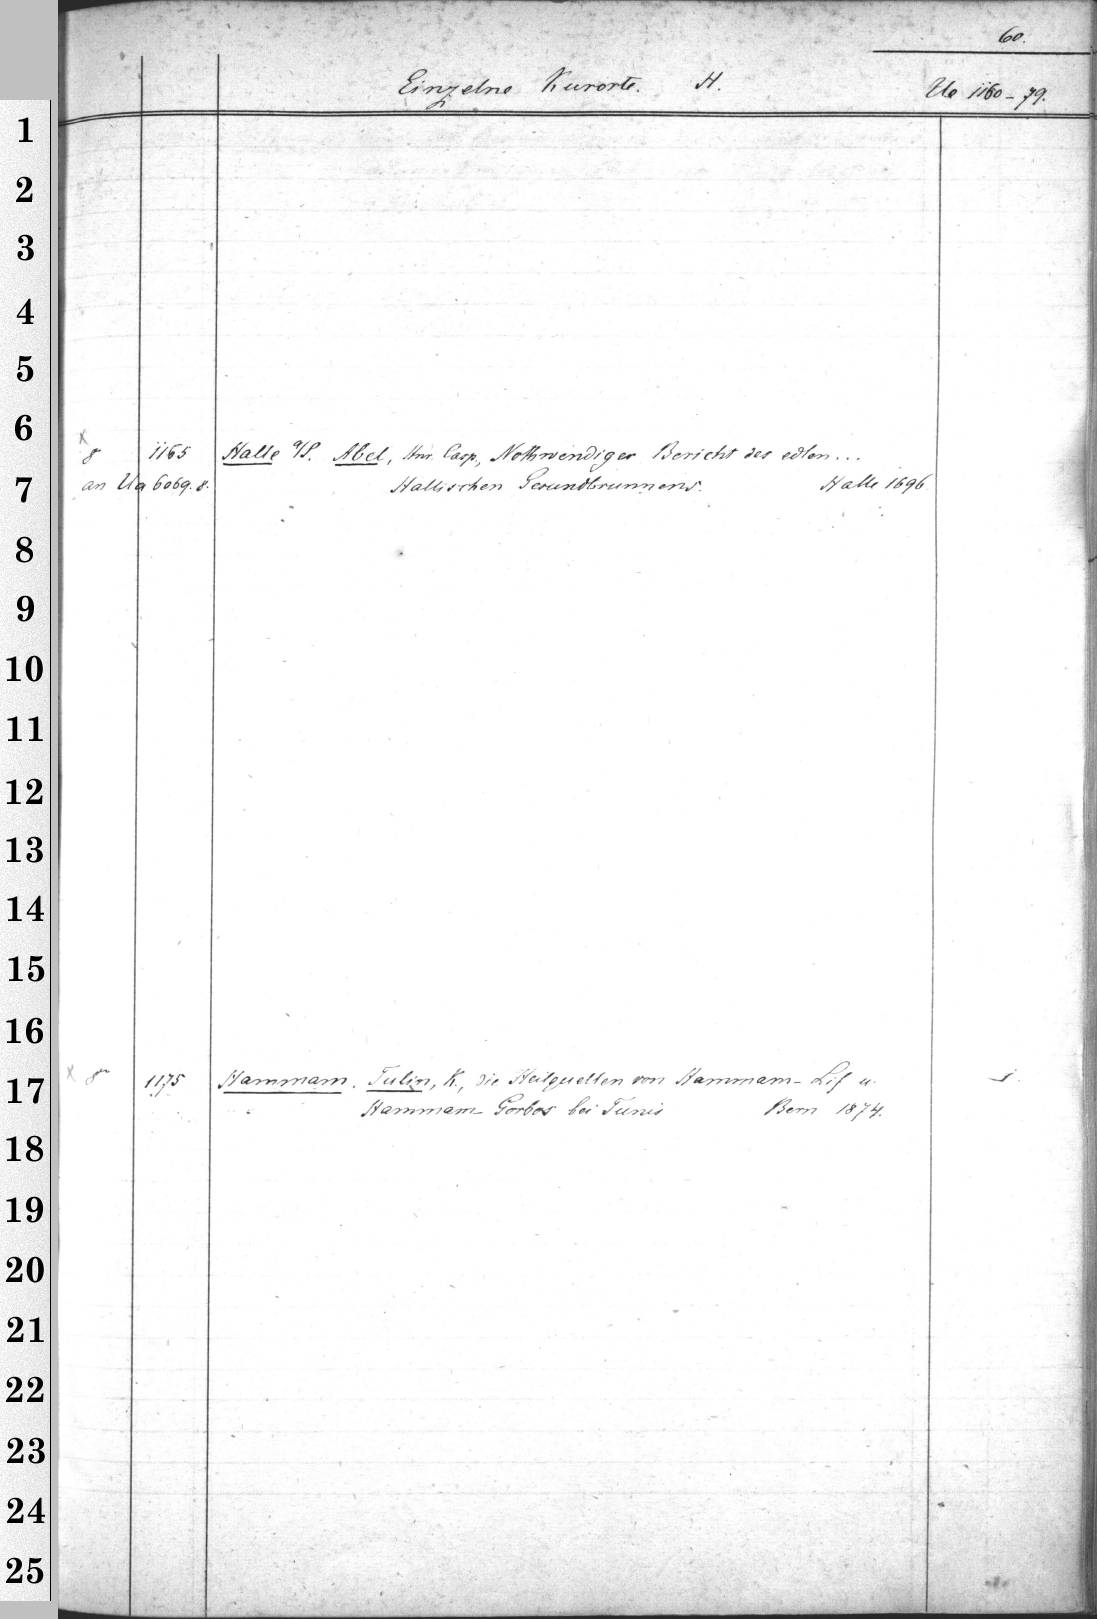 60.
Einzelne Kurorte. H. Ue 1160-79.
1
2
3
4
5
6
x
8 1165 Halle a/S. Abel, Hnr. Casp., Nothwendiger Bericht des edlen...
7
an Ua 6069.8. Hallischen Gesundbrunnens. Halle 1696
8
9
10
11
12
13
14
15
16
17
x 8° 1175 Hammam. Tulin, K., die Heilquellen von Hammam-Lif u.
Hammam-Gorbos bei Tunis Bern 1874.
18
19
20
21
22
23
24
25